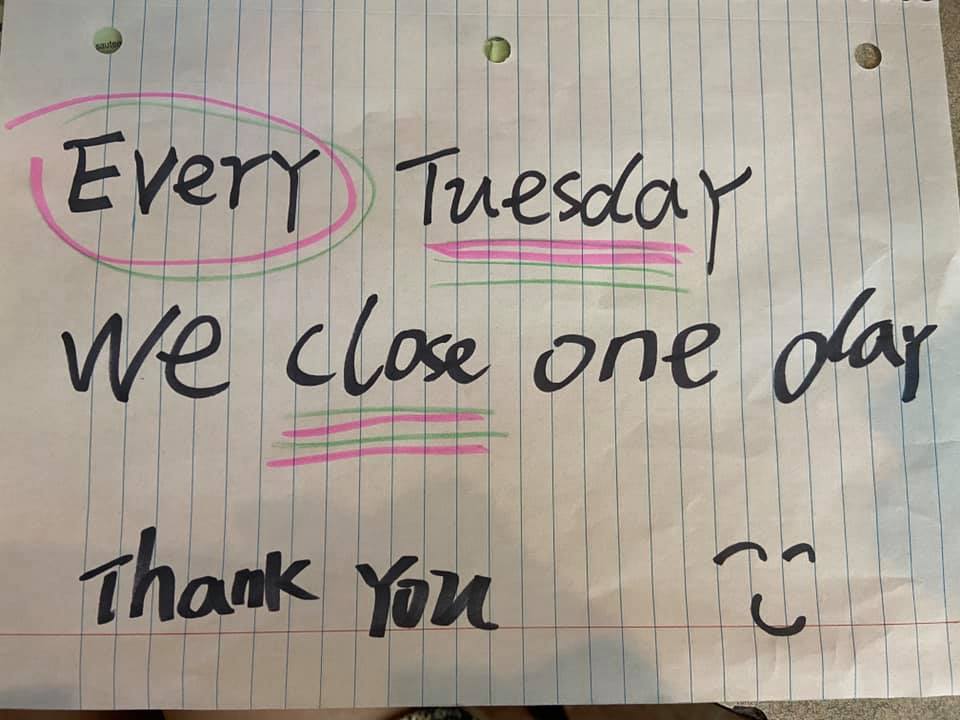 Every Tuesday
We close one day
Thank You